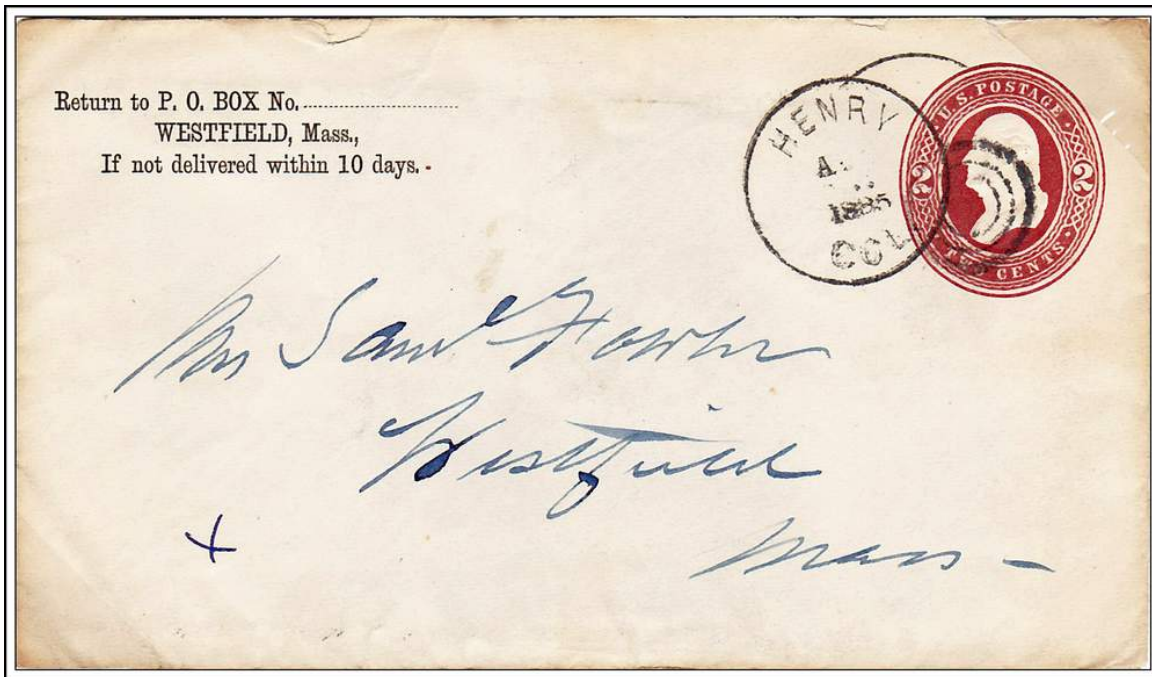 Return to P. O. BOX No.
WESTFIELD, Mass.,
If not delivered within 10 days.
HENRY
1885
COL.
U.S. POSTAGE
2 2
TWO CENTS
Mr Saml Fowler
Westfield
Mass -